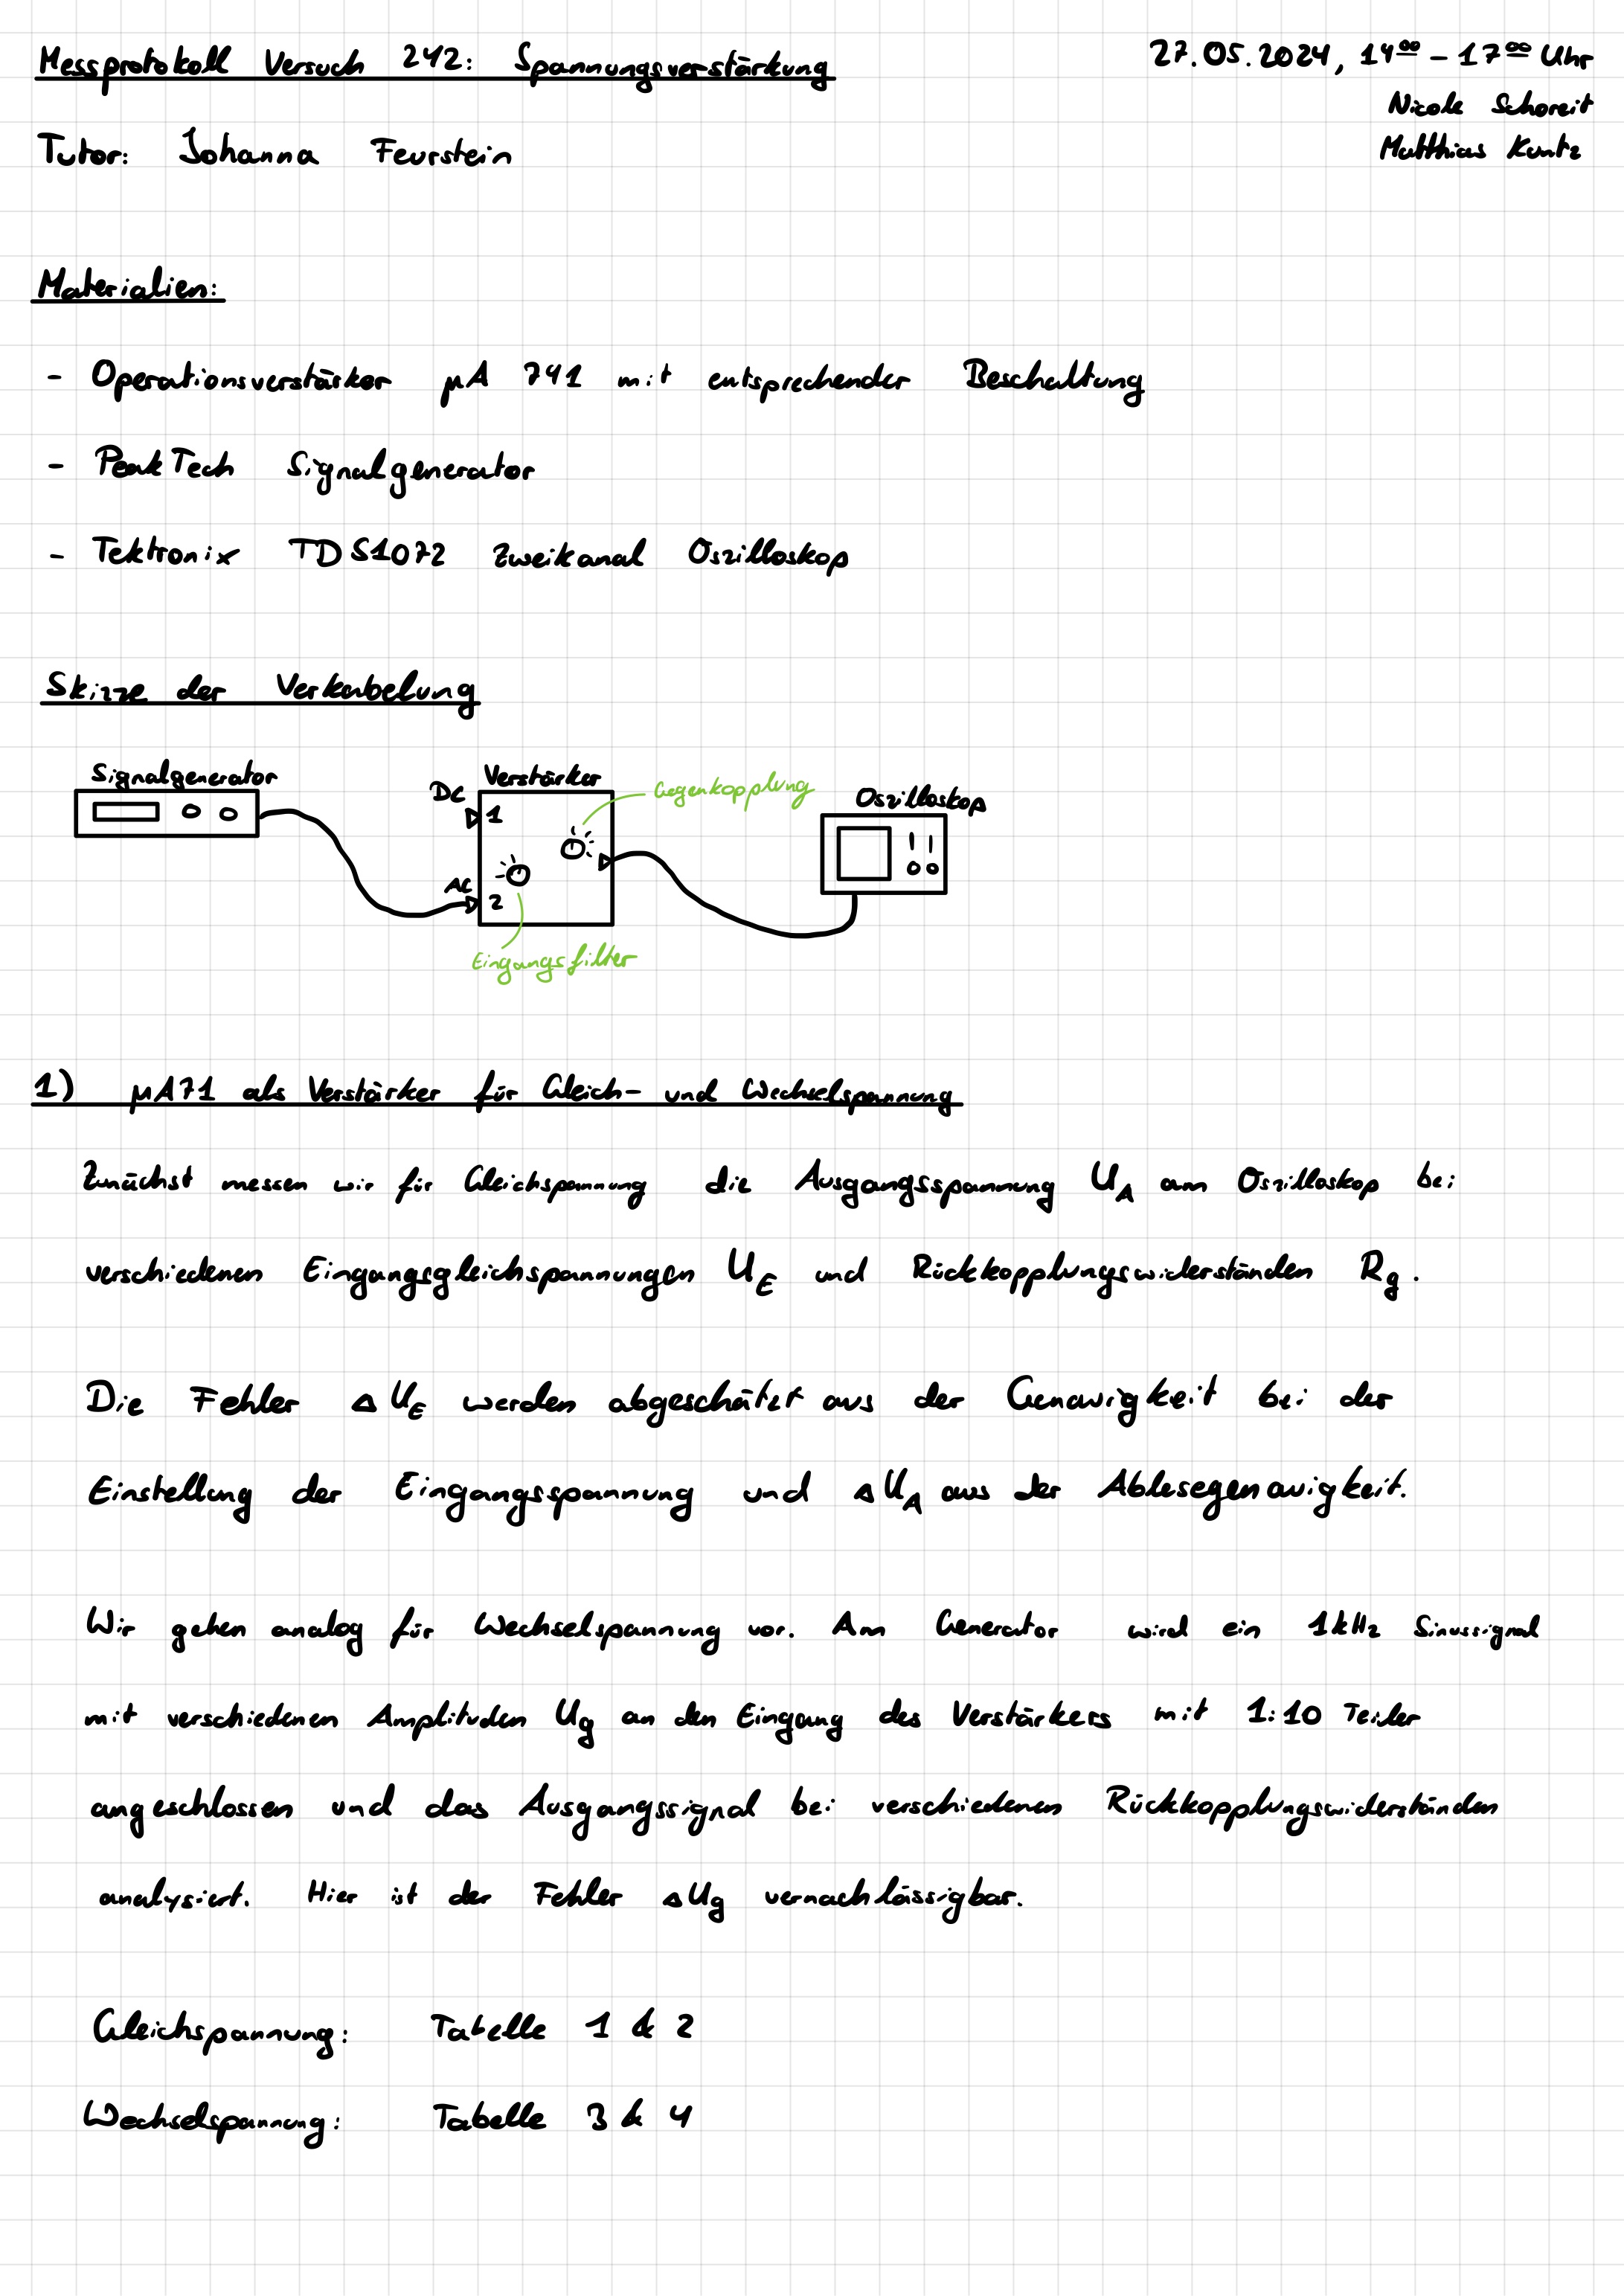 Messprotokoll Versuch 242: Spannungsverstärkung
27.05.2024, 14⁰⁰ - 17⁰⁰ Uhr
Nicole Schoreit
Matthias Kuntz
Tutor: Johanna Feurstein
Materialien:
- Operationsverstärker µA 741 mit entsprechender Beschaltung
- PeakTech Signalgenerator
- Tektronix TDS1072 Zweikanal Oszilloskop
Skizze der Verkabelung
Signalgenerator
DC
Verstärker
Gegenkopplung
Oszilloskop
1
AC
2
Eingangsfilter
1) µA71 als Verstärker für Gleich- und Wechselspannung
Zunächst messen wir für Gleichspannung die Ausgangsspannung U_A am Oszilloskop bei
verschiedenen Eingangsgleichspannungen U_E und Rückkopplungswiderständen R_g.
Die Fehler ΔU_E werden abgeschätzt aus der Genauigkeit bei der
Einstellung der Eingangsspannung und ΔU_A aus der Ablesegenauigkeit.
Wir gehen analog für Wechselspannung vor. Am Generator wird ein 1kHz Sinussignal
mit verschiedenen Amplituden U_g an den Eingang des Verstärkers mit 1:10 Teiler
angeschlossen und das Ausgangssignal bei verschiedenen Rückkopplungswiderständen
analysiert. Hier ist der Fehler ΔU_g vernachlässigbar.
Gleichspannung: Tabelle 1 & 2
Wechselspannung: Tabelle 3 & 4